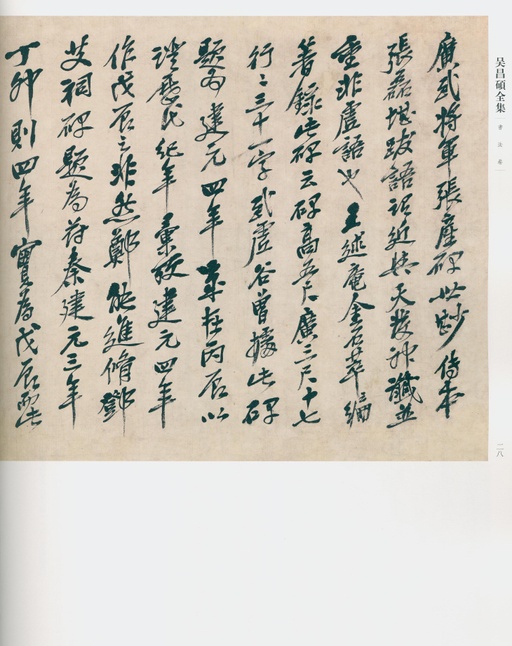 廣武將軍張產碑世尟傳本
張磊堪跋語謂近姓天發神讖並
重非虛語也王述庵金石萃編
著錄此碑云碑高五尺廣三尺十七
行三十一字武虛谷曾據此碑
題為建元四年歲在丙辰以
證歷代紀年彙改建元四年
作戊辰之非然鄭能進脩鄧
艾祠碑題為苻秦建元三年
丁卯則四年實為戊辰而此
吴昌碩全集
書法卷一
二八